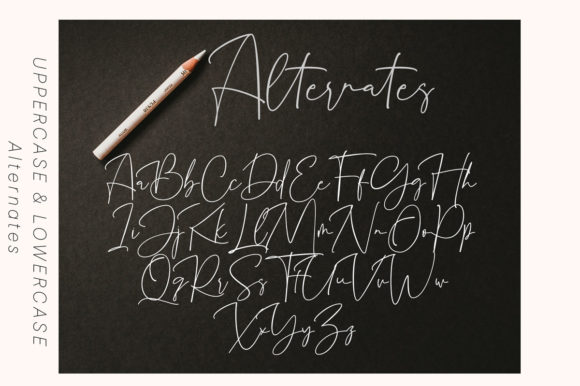 UPPERCASE & LOWERCASE
Alternates
Alternates
AaBbCcDdEeFfGgHh
IiJjKkLlMmNnOoPp
QqRrSsTtUuVvWw
XxYyZz